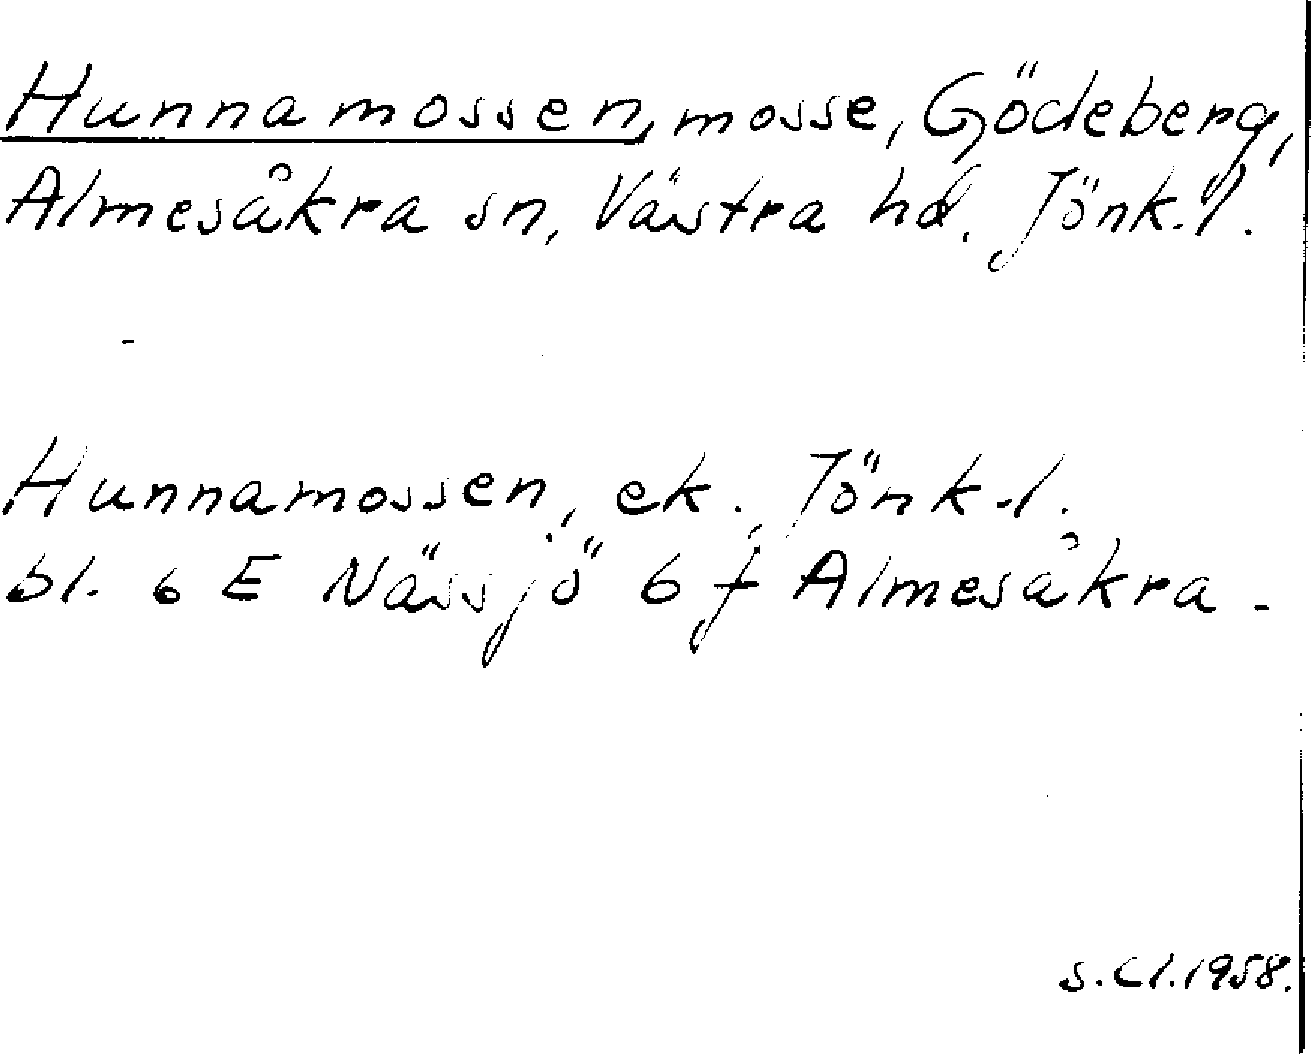 Hunnamossen, mosse, Gödeberg,
Almesåkra sn, Västra hd. Jönk.l.
-
Hunnamossen, ek. Jönk.l.
bl. 6 E Nässjö 6 f Almesåkra -
S.Cl.1958.